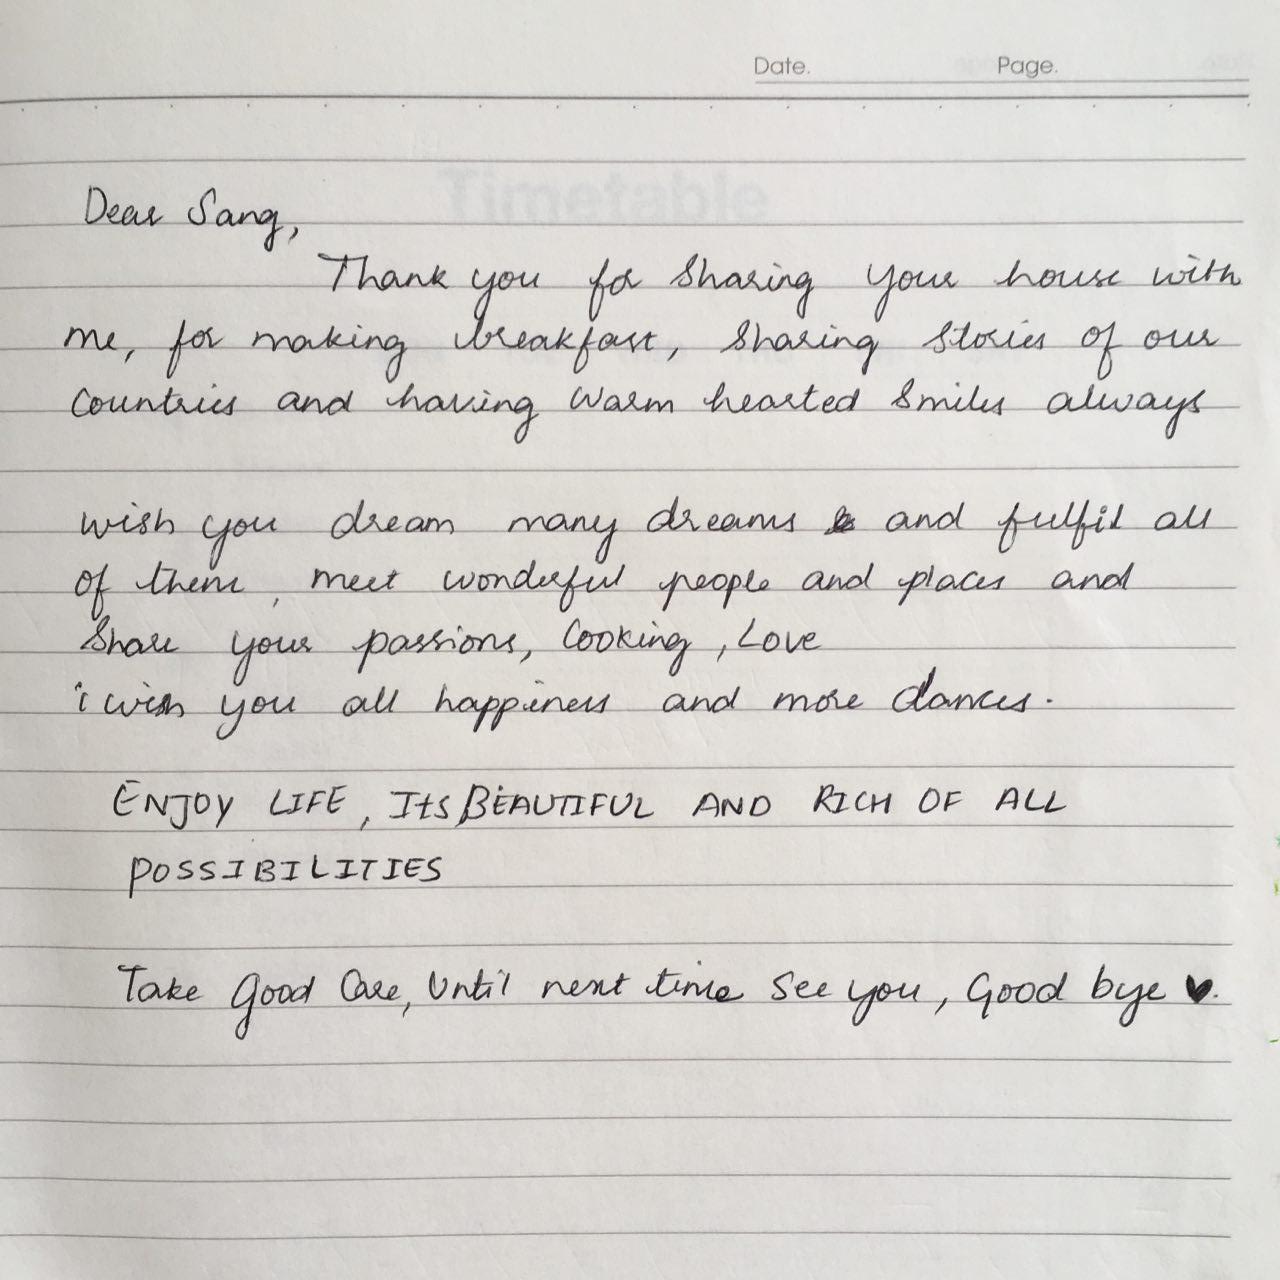 Date. Page.
Timetable
Dear Sang,
Thank you for sharing your house with
me, for making breakfast, sharing stories of our
countries and having warm hearted smiles always
wish you dream many dreams and fulfil all
of them, meet wonderful people and places and
share your passions, cooking, Love
i wish you all happiness and more dances.
ENJOY LIFE, ItS BEAUTIFUL AND RICH OF ALL
POSSIBILITIES
Take Good Care, Until next time see you, Good bye ♥.